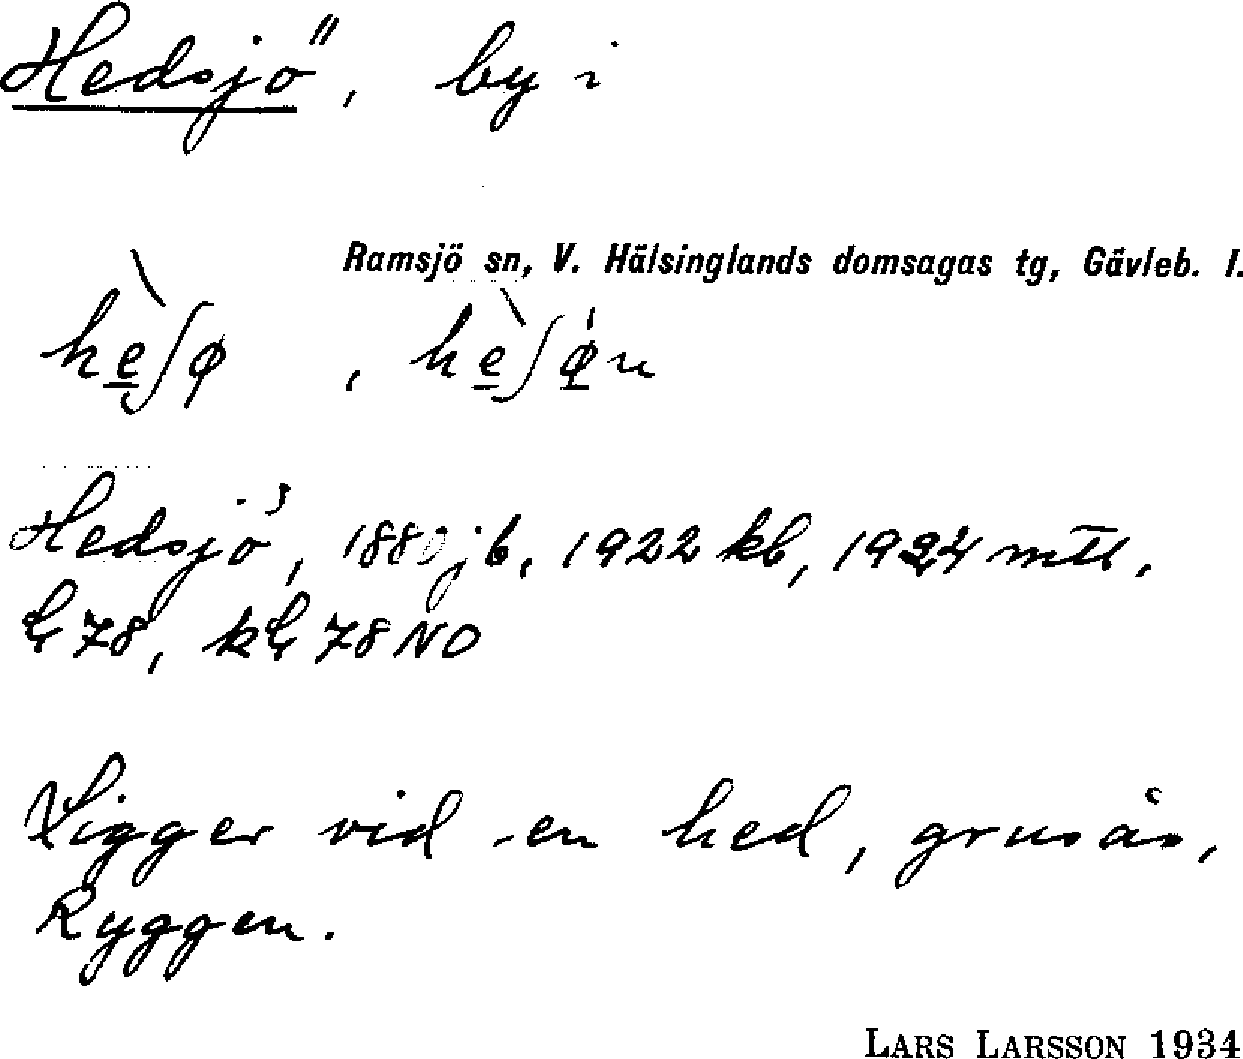 Hedsjö, by i
Ramsjö sn, V. Hälsinglands domsagas tg, Gävleb. l.
hèʃø, hèʃø̀n
Hedsjö, 1880 jb, 1922 kb, 1924 mtl,
78, 78 NO
Ligger vid en hed, grusås,
Ryggen.
LARS LARSSON 1934